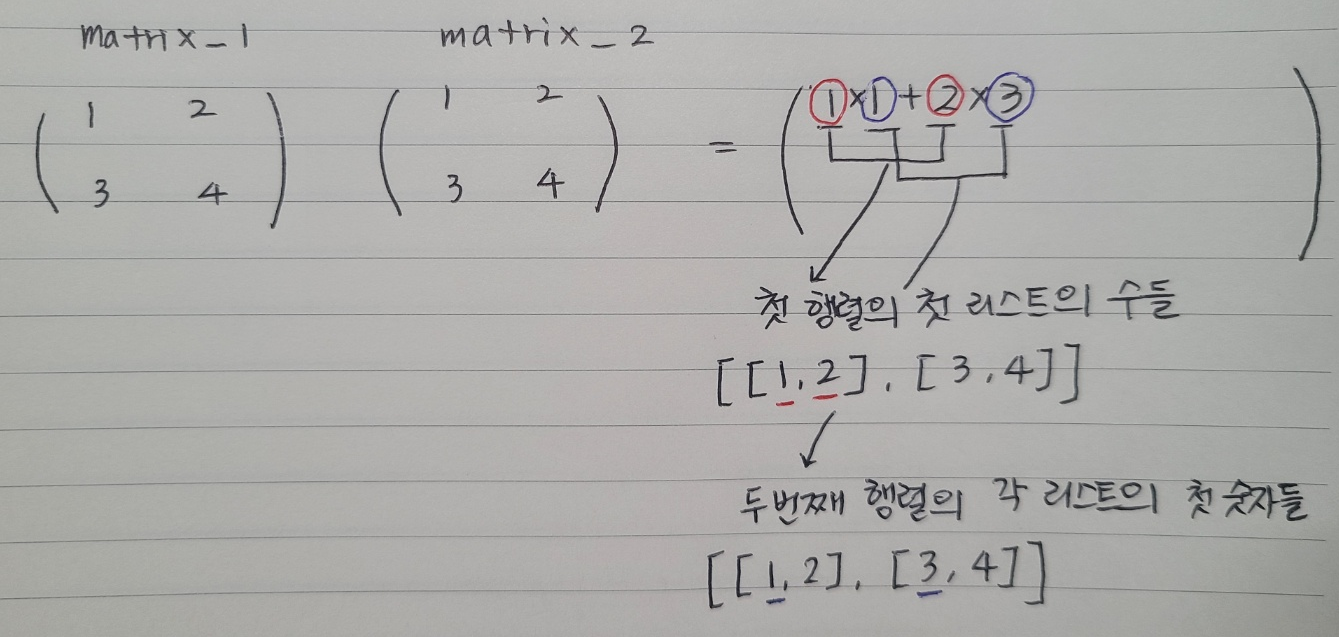 matrix_1 matrix_2
( 1 2 ) ( 1 2 ) = ( 1×1+2×3 )
3 4 3 4
첫 행렬의 첫 리스트의 수들
[[1, 2], [3, 4]]
두번째 행렬의 각 리스트의 첫 숫자들
[[1, 2], [3, 4]]